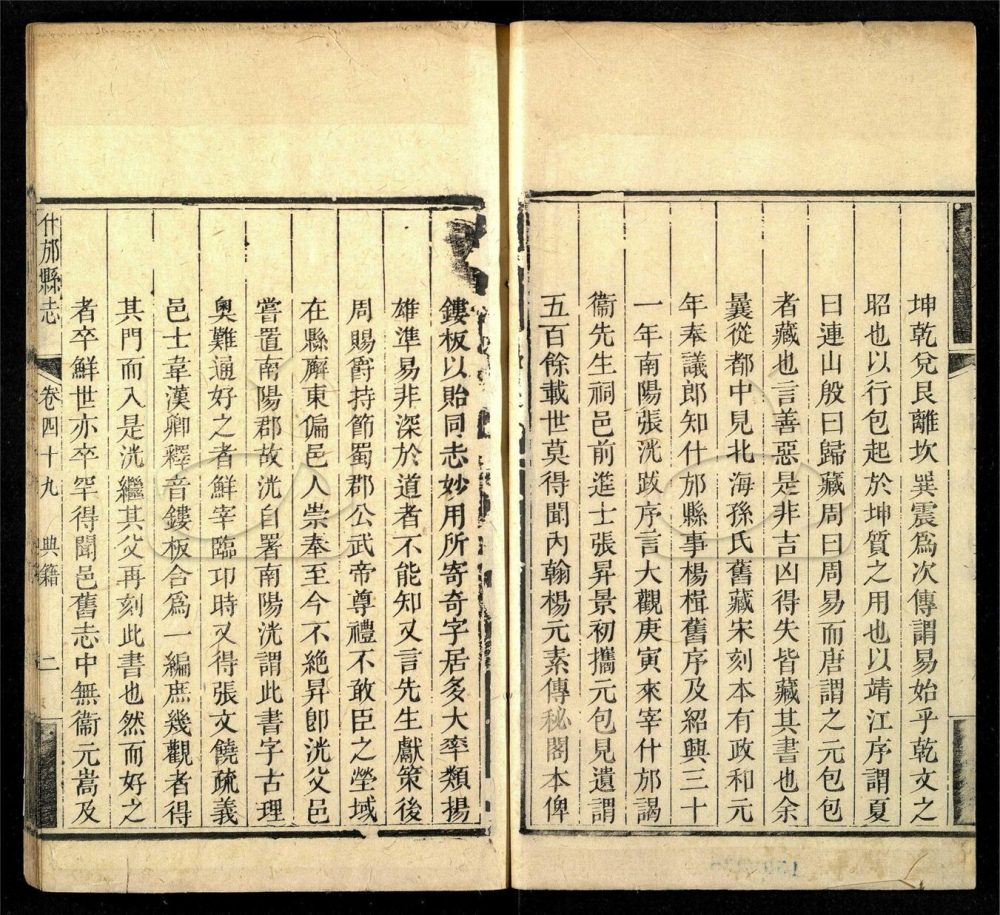 坤乾兌艮離坎巽震為次傳謂易始乎乾文之
昭也以行包起於坤質之用也以靖江序謂夏
曰連山殷曰歸藏周曰周易而唐謂之元包包
者藏也言善惡是非吉凶得失皆藏其書也余
曩從都中見北海孫氏舊藏宋刻本有政和元
年奉議郎知什邡縣事楊楫舊序及紹興三十
一年南陽張洸跋序言大觀庚寅來宰什邡謁
衞先生祠邑前進士張昇景初攜元包見遺謂
五百餘載世莫得聞內翰楊元素傳秘閣本俾
鏤板以貽同志妙用所寄奇字居多大率類揚
雄準易非深於道者不能知又言先生獻策後
周賜爵持節蜀郡公武帝尊禮不敢臣之塋域
在縣廨東偏邑人崇奉至今不絕昇卽洸父邑
嘗置南陽郡故洸自署南陽洸謂此書字古理
奧難通好之者鮮宰臨邛時又得張文饒疏義
邑士韋漢卿釋音鏤板合為一編庶幾觀者得
其門而入是洸繼其父再刻此書也然而好之
者卒鮮世亦卒罕得聞邑舊志中無衞元嵩及
什邡縣志 卷四十九 典籍 二